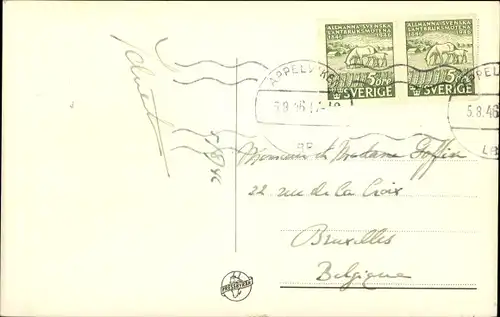 ALLMÄNNA SVENSKA
LANTBRUKSMÖTENA
1846 1946
5 ÖRE
SVERIGE
ALLMÄNNA SVENSKA
LANTBRUKSMÖTENA
1846 1946
5 ÖRE
SVERIGE
5.8.46
5/8/46
Monsieur et Madame Goffin
22 rue de la Croix
Bruxelles
Belgique
PRESSBYRÅN